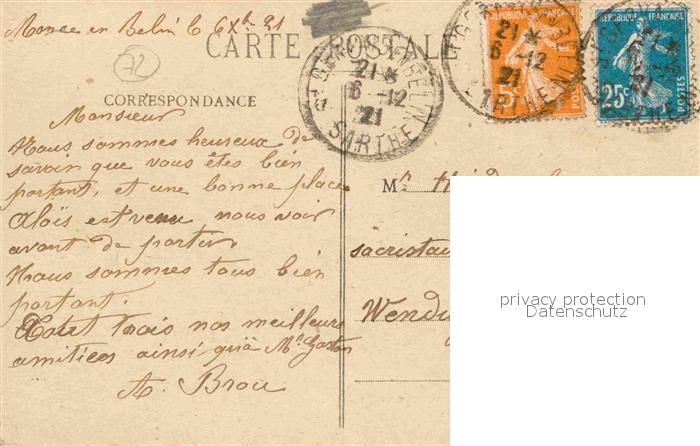 Moncé en Belin le 6 Xbre 21
72
CARTE POSTALE
CORRESPONDANCE
Monsieur
Nous sommes heureux de
savoir que vous êtes bien
portant, et une bonne place
Aloïs est venu nous voir
avant de partir
Nous sommes tous bien
portant.
trois nos meilleurs
amitiées ainsi qu'à Mr Gaston
A. Brou
21 *
6 -12
21
SARTHE
RÉPUBLIQUE FRANÇAISE
5c
21 *
6 -12
21
SARTHE
RÉPUBLIQUE FRANÇAISE
25c
POSTES
Mr
sacristau
Wendu
privacy protection
Datenschutz